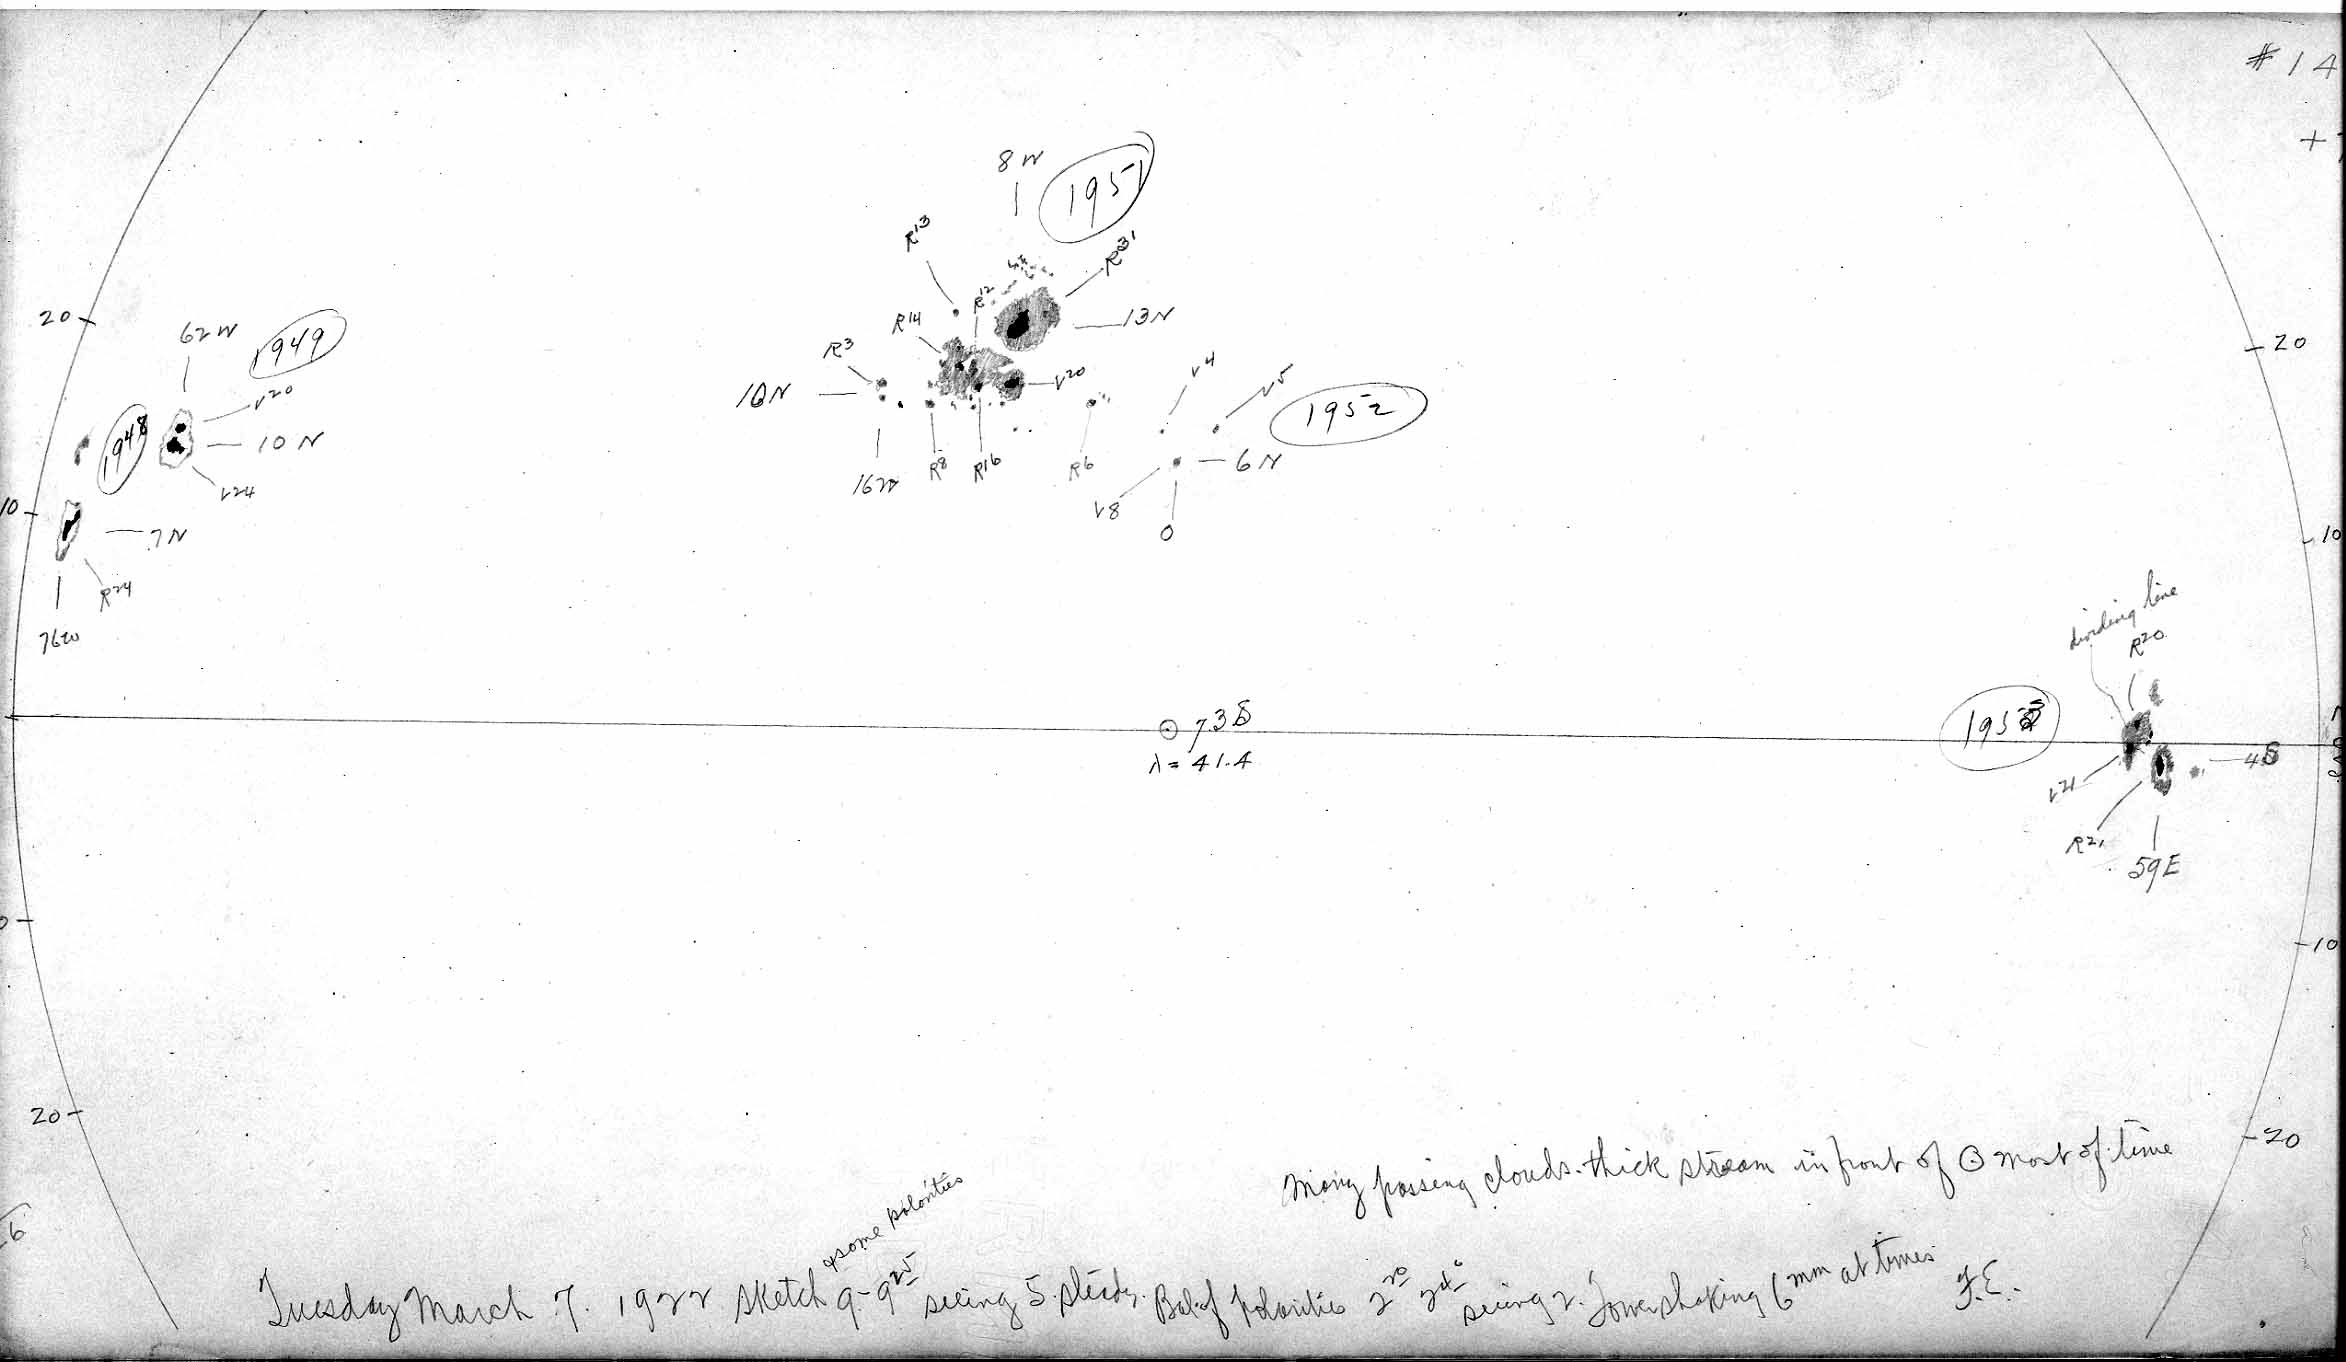 #14
+
8W
1951
R13
R31
R12
R14
13N
R3
10N
V20
V4
V5
1952
6N
16W
R8
R16
R6
V8
0
20
62W
1949
V20
10N
1948
V24
10
7N
R24
76W
20
10
dividing line
R20
1953
4S
V21
R21
59E
7.3S
λ = 41.4
10
20
20
Many passing clouds. thick stream in front of ⊙ most of time
& some polarities
Tuesday March 7. 1922 sketch 9-9 25 seeing 5. steady. Bal. of polarities 2 20 2 40 seeing 2. Tower shaking 6 mm at times F.E.